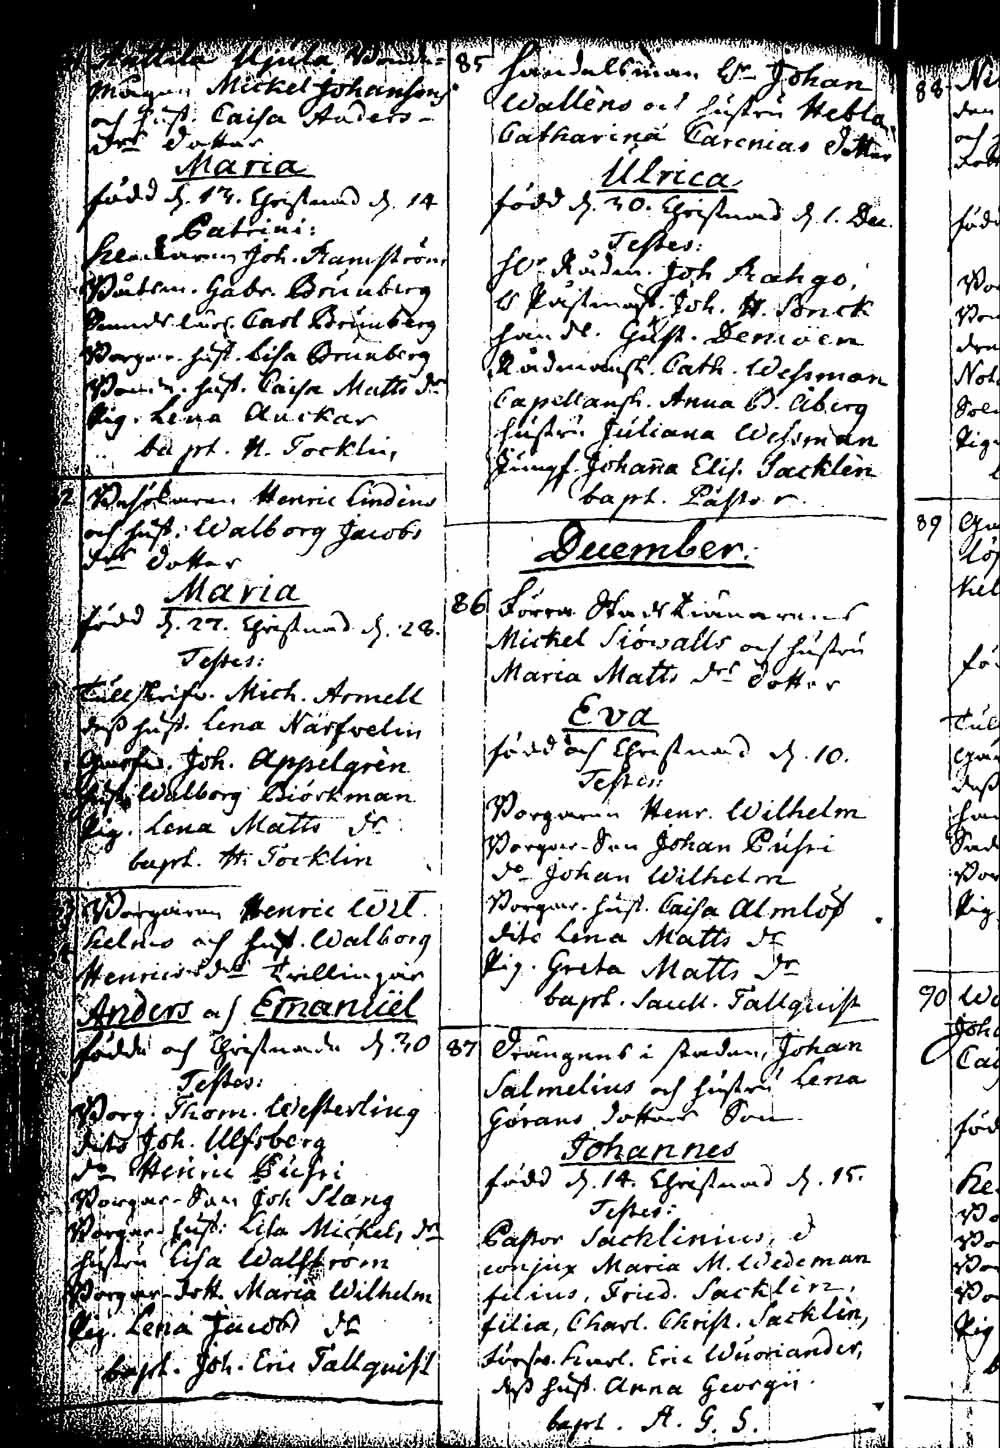 Mågen Mickel Johansons
och hust. Caisa Anders-
dr dotter
Maria
född d. 13. Christnad d. 14
Patrini:
Joh. Ramström
Gabr. Brunberg
Carl Brunberg
Borgar. hust. Lisa Brunberg
hust. Caisa Matts dr
Pig. Lena Auckar
bapt. H. Tocklin
Henric Lindens
och hust: Walborg Jacobs
dr dotter
Maria
född d. 27. Christnad d. 28.
Testes:
Tullskrifv. Mich. Armell
dess hust. Lena Närfvelin
Joh. Appelgrèn
hust. Walborg Biörkman
Pig. Lena Matts dr
bapt. H. Tocklin
Borgaren Henric Wil
helms och hust. Walborg
Henrics dr Tvillingar
Anders och Emanuel
födde och Christnade d. 30
Testes:
Borg. Thom. Westerling
dito Joh. Ulfsberg
do Henric Pusri
Borgar-Son Joh Slang
Borgar hust: Lisa Mickels dr
hustru Lisa Wallström
Borgar-dott. Maria Wilhelm
Pig. Lena Jacobs dr
bapt. Joh. Eric Tallquist
85 Handelsman Hr Johan
Wallèns och hustru Hebla
Catharina Carenias dotter
Ulrica
född d. 30. Christnad d. 1. Dec.
Testes:
Hr Rådm. Joh
Joh. H. Brick
Handl. Gust.
Rådmansh. Cath. Wessman
Capellansh. Anna B. Åberg
hustru Juliana Wessman
Jungf. Johanna Elis. Sacklèn
bapt. Pastor
December.
86 Förra Stadstiänarens
Mickel Siöwalls och hustru
Maria Matts dr dotter
Eva
född och Christnad d. 10.
Testes:
Borgaren Henr. Wilhelm
Borgar-Son Johan Pusri
do Johan Wilhelm
Borgar. hust. Caisa Almlöf
dito Lena Matts dr
Pig. Greta Matts dr
bapt. Sacell. Tallquist
87 Drängens i staden, Johan
Salmelius och hustru Lena
Görans dotters Son
Johannes
född d. 14. Christnad d. 15.
Testes:
Pastor Sacklinius, et
conjux Maria M. Wedeman
filius, Fried. Sacklèn,
filia, Charl. Christ. Sacklèn,
Eric Wuoriander,
dess hust. Anna Georgii.
bapt. A. G. S.
88
den
och
född
89
90